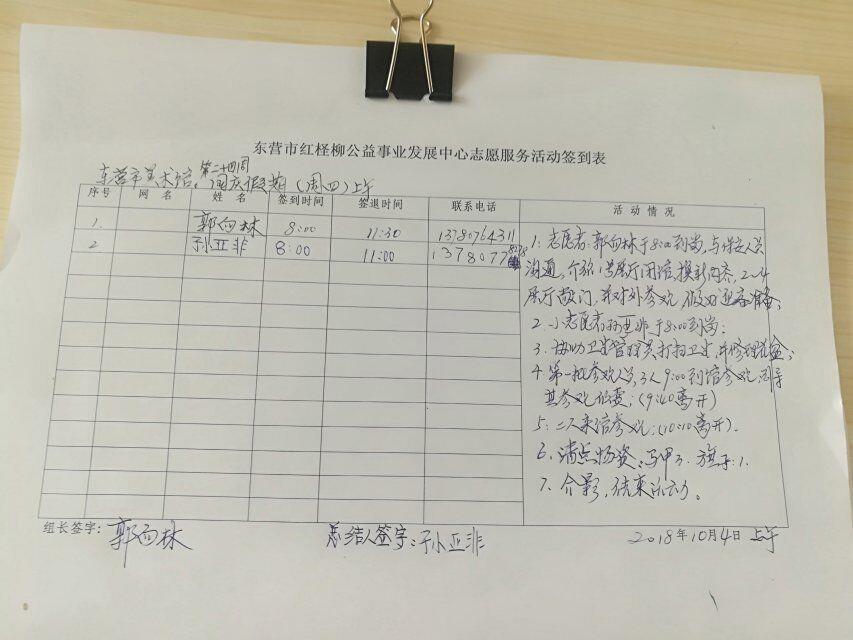 东营市红柽柳公益事业发展中心志愿服务活动签到表
第二十四周
东营市美术馆,国庆假期(周四)上午
序号 网 名 姓 名 签到时间 签退时间 联系电话 活 动 情 况
1. 郭向林 8:00 11:30 13780764311
2 孙亚非 8:00 11:00 1378077
1:志愿者:郭向林于8:00到岗,与保安人员
沟通,介绍1号展厅闭馆,换新内容,2~4
展厅敞门,并对外参观,
2.小志愿者孙亚非于8:00到岗:
3.协助卫生管理员打扫卫生,并修理
4.第一批参观人员,3人9:00到馆参观,引导
其参观位置:(9:40离开)
5:二人来馆参观:(10:10离开).
6.清点物资:马甲3.旗子:1.
7.合影,结束活动。
组长签字:郭向林 总结人签字:孙亚非 2018年10月4日 上午